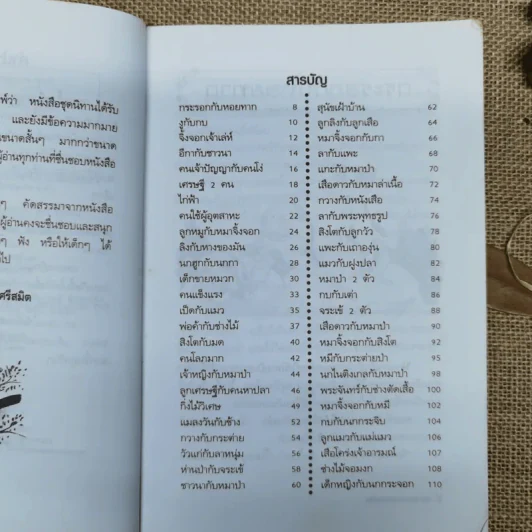 พ์ว่า หนังสือชุดนิทานได้รับ
และยังมีข้อความมากมาย
ขนาดสั้นๆ มากกว่าขนาด
ผู้อ่านทุกท่านที่ชื่นชอบหนังสือ
ๆ คัดสรรมาจากหนังสือ
ผู้อ่านคงจะชื่นชอบและสนุก
ๆ ฟัง หรือให้เด็กๆ ได้
ไป
ศรีสมิต
สารบัญ
กระรอกกับหอยทาก 8
งูกับกบ 10
จิ้งจอกเจ้าเล่ห์ 12
อีกากับชาวนา 14
คนเจ้าปัญญากับคนโง่ 16
เศรษฐี 2 คน 18
ไก่ฟ้า 20
คนใช้ผู้อุตสาหะ 22
ลูกหมูกับหมาจิ้งจอก 24
ลิงกับหางของมัน 26
นกฮูกกับนกกา 28
เด็กขายหมวก 30
คนแข็งแรง 33
เป็ดกับแมว 35
พ่อค้ากับช่างไม้ 37
สิงโตกับมด 40
คนโลภมาก 42
เจ้าหญิงกับหมาป่า 44
ลูกเศรษฐีกับคนหาปลา 46
กิ่งไม้วิเศษ 49
แมลงวันกับช้าง 52
กวางกับกระต่าย 54
วัวแก่กับลาหนุ่ม 56
ห่านป่ากับจระเข้ 58
ชาวนากับหมาป่า 60
สุนัขเฝ้าบ้าน 62
ลูกลิงกับลูกเสือ 64
หมาจิ้งจอกกับกา 66
ลากับแพะ 68
แกะกับหมาป่า 70
เสือดาวกับหมาล่าเนื้อ 72
กวางกับหนังเสือ 74
ลากับพระพุทธรูป 76
สิงโตกับลูกวัว 78
แพะกับเถาองุ่น 80
แมวกับฝูงปลา 82
หมาป่า 2 ตัว 84
กบกับเต่า 86
จระเข้ 2 ตัว 88
เสือดาวกับหมาป่า 90
หมาจิ้งจอกกับสิงโต 92
หมีกับกระต่ายป่า 95
นกไนติงเกลกับหมาป่า 98
พระจันทร์กับช่างตัดเสื้อ 100
หมาจิ้งจอกกับหมี 102
กบกับนกกระจิบ 104
ลูกแมวกับแม่แมว 106
เสือโคร่งเจ้าอารมณ์ 107
ช่างไม้จอมงก 108
เด็กหญิงกับนกกระจอก 110